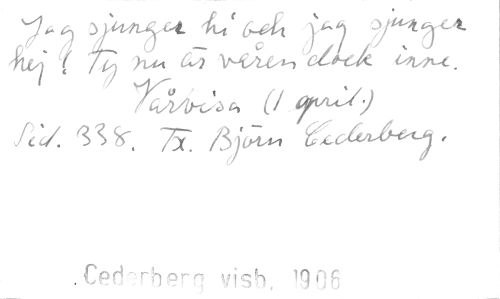 Jag sjunger hi och jag sjunger
hej! Ty nu är våren dock inne.
Vårvisa (1 april.)
Sid. 338. Tx. Björn Cederberg.
. Cederberg visb. 1906